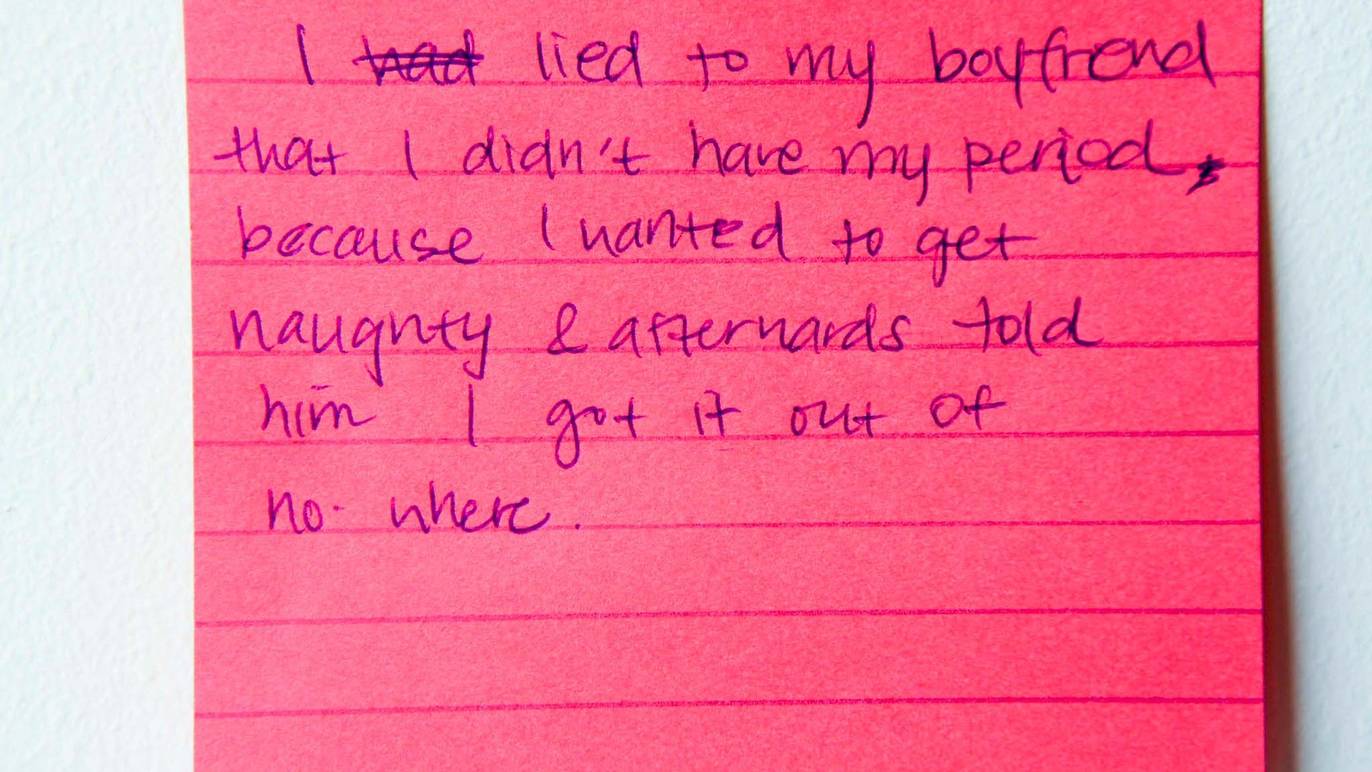 I had lied to my boyfrend
that I didn't have my period,
because I wanted to get
naughty & afterwards told
him I got it out of
no where.